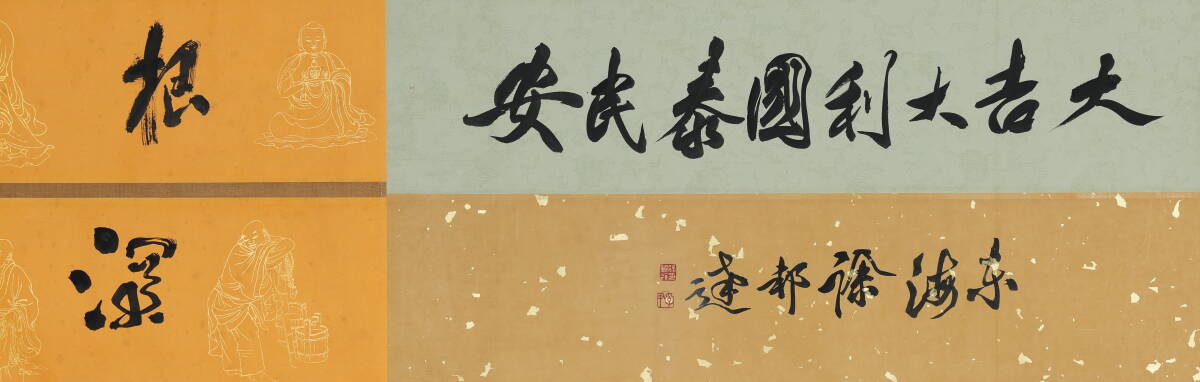 大吉大利國泰民安
東海徐邦達
根
深